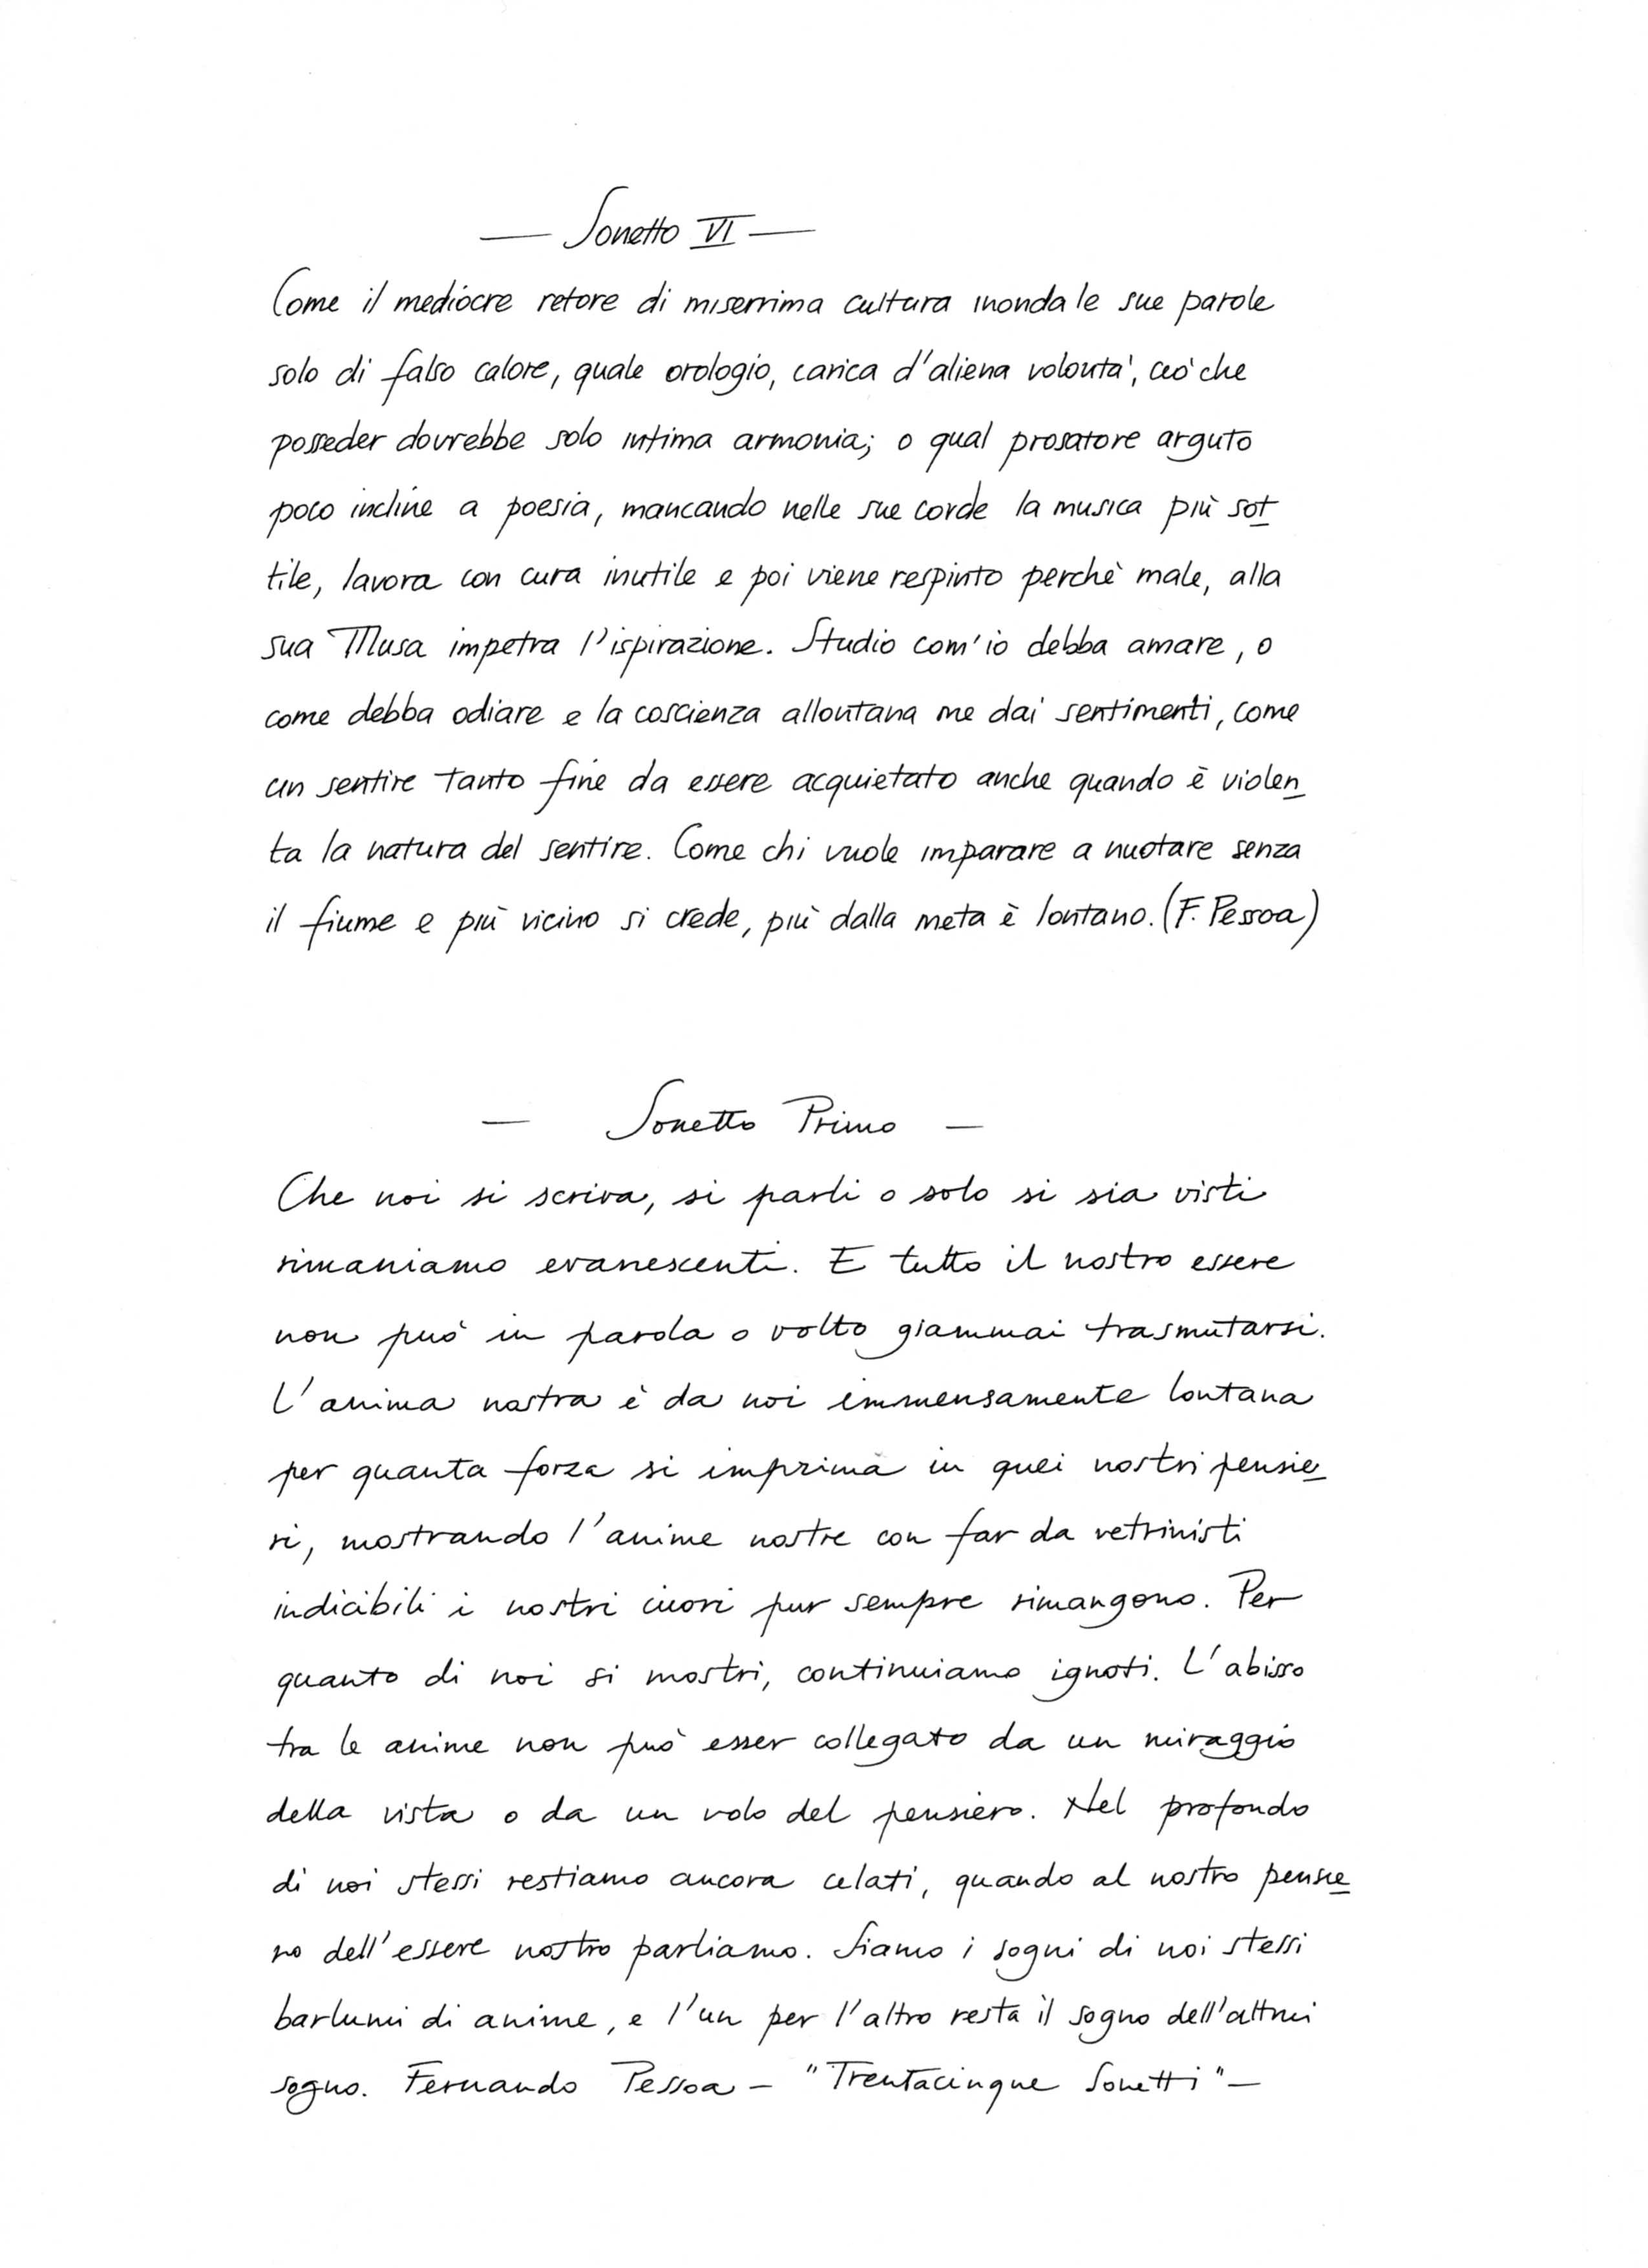 — Sonetto VI —
Come il mediocre retore di miserrima cultura inonda le sue parole
solo di falso calore, quale orologio, carica d'aliena volontà, ciò che
posseder dovrebbe solo intima armonia; o qual prosatore arguto
poco incline a poesia, mancando nelle sue corde la musica più sot
tile, lavora con cura inutile e poi viene respinto perchè male, alla
sua Musa impetra l'ispirazione. Studio com'io debba amare, o
come debba odiare e la coscienza allontana me dai sentimenti, come
un sentire tanto fine da essere acquietato anche quando è violen
ta la natura del sentire. Come chi vuole imparare a nuotare senza
il fiume e più vicino si crede, più dalla meta è lontano. (F. Pessoa)
— Sonetto Primo —
Che noi si scriva, si parli o solo si sia visti
rimaniamo evanescenti. E tutto il nostro essere
non può in parola o volto giammai trasmutarsi.
L'anima nostra è da noi immensamente lontana
per quanta forza si imprima in quei nostri pensie
ri, mostrando l'anime nostre con far da vetrinisti
indicibili i nostri cuori pur sempre rimangono. Per
quanto di noi si mostri, continuiamo ignoti. L'abisso
tra le anime non può esser collegato da un miraggio
della vista o da un volo del pensiero. Nel profondo
di noi stessi restiamo ancora celati, quando al nostro pensie
ro dell'essere nostro parliamo. Siamo i sogni di noi stessi
barlumi di anime, e l'un per l'altro resta il sogno dell'altrui
sogno. Fernando Pessoa – "Trentacinque Sonetti" –